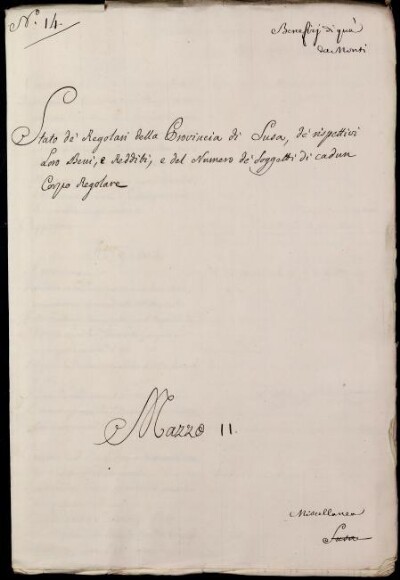 N.° 14.
Benefizj di quà
da Monti
Stato de' Regolari della Provincia di Susa, de' rispettivi
Loro Beni, e Redditi, e del Numero de' Soggetti di cadun
Corpo Regolare
Mazzo 11.
Miscellanea
Susa